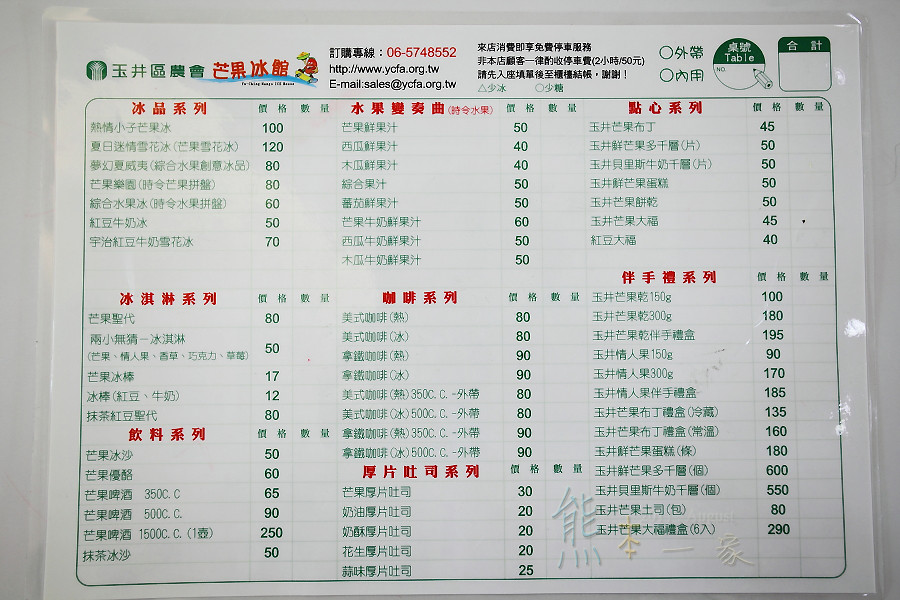 玉井區農會 芒果冰館
Yu-Ching Mango ICE House
訂購專線：06-5748552
http://www.ycfa.org.tw
E-mail:sales@ycfa.org.tw
來店消費即享免費停車服務
非本店顧客一律酌收停車費(2小時/50元)
請先入座填單後至櫃檯結帳，謝謝！
△少冰 ○少糖
○外帶
○內用
桌號
Table
NO.
合計
冰品系列 價格 數量
熱情小子芒果冰 100
夏日迷情雪花冰(芒果雪花冰) 120
夢幻夏威夷(綜合水果創意冰品) 80
芒果樂園(時令芒果拼盤) 80
綜合水果冰(時令水果拼盤) 60
紅豆牛奶冰 50
宇治紅豆牛奶雪花冰 70
冰淇淋系列 價格 數量
芒果聖代 80
兩小無猜－冰淇淋 50
(芒果、情人果、香草、巧克力、草莓)
芒果冰棒 17
冰棒(紅豆、牛奶) 12
抹茶紅豆聖代 80
飲料系列 價格 數量
芒果冰沙 50
芒果優酪 60
芒果啤酒 350C.C 65
芒果啤酒 500C.C. 90
芒果啤酒 1500C.C.(1壺) 250
抹茶冰沙 50
水果變奏曲(時令水果) 價格 數量
芒果鮮果汁 50
西瓜鮮果汁 40
木瓜鮮果汁 40
綜合果汁 50
蕃茄鮮果汁 50
芒果牛奶鮮果汁 60
西瓜牛奶鮮果汁 50
木瓜牛奶鮮果汁 50
咖啡系列 價格 數量
美式咖啡(熱) 80
美式咖啡(冰) 80
拿鐵咖啡(熱) 90
拿鐵咖啡(冰) 90
美式咖啡(熱)350C.C.-外帶 80
美式咖啡(冰)500C.C.-外帶 80
拿鐵咖啡(熱)350C.C.-外帶 90
拿鐵咖啡(冰)500C.C.-外帶 90
厚片吐司系列 價格 數量
芒果厚片吐司 30
奶油厚片吐司 20
奶酥厚片吐司 20
花生厚片吐司 20
蒜味厚片吐司 25
點心系列 價格 數量
玉井芒果布丁 45
玉井鮮芒果多千層(片) 50
玉井貝里斯牛奶千層(片) 50
玉井鮮芒果蛋糕 50
玉井芒果餅乾 50
玉井芒果大福 45
紅豆大福 40
伴手禮系列 價格 數量
玉井芒果乾150g 100
玉井芒果乾300g 180
玉井芒果乾伴手禮盒 195
玉井情人果150g 90
玉井情人果300g 170
玉井情人果伴手禮盒 185
玉井芒果布丁禮盒(冷藏) 135
玉井芒果布丁禮盒(常溫) 160
玉井鮮芒果蛋糕(條) 180
玉井鮮芒果多千層(個) 600
玉井貝里斯牛奶千層(個) 550
玉井芒果土司(包) 80
玉井芒果大福禮盒(6入) 290
熊本一家